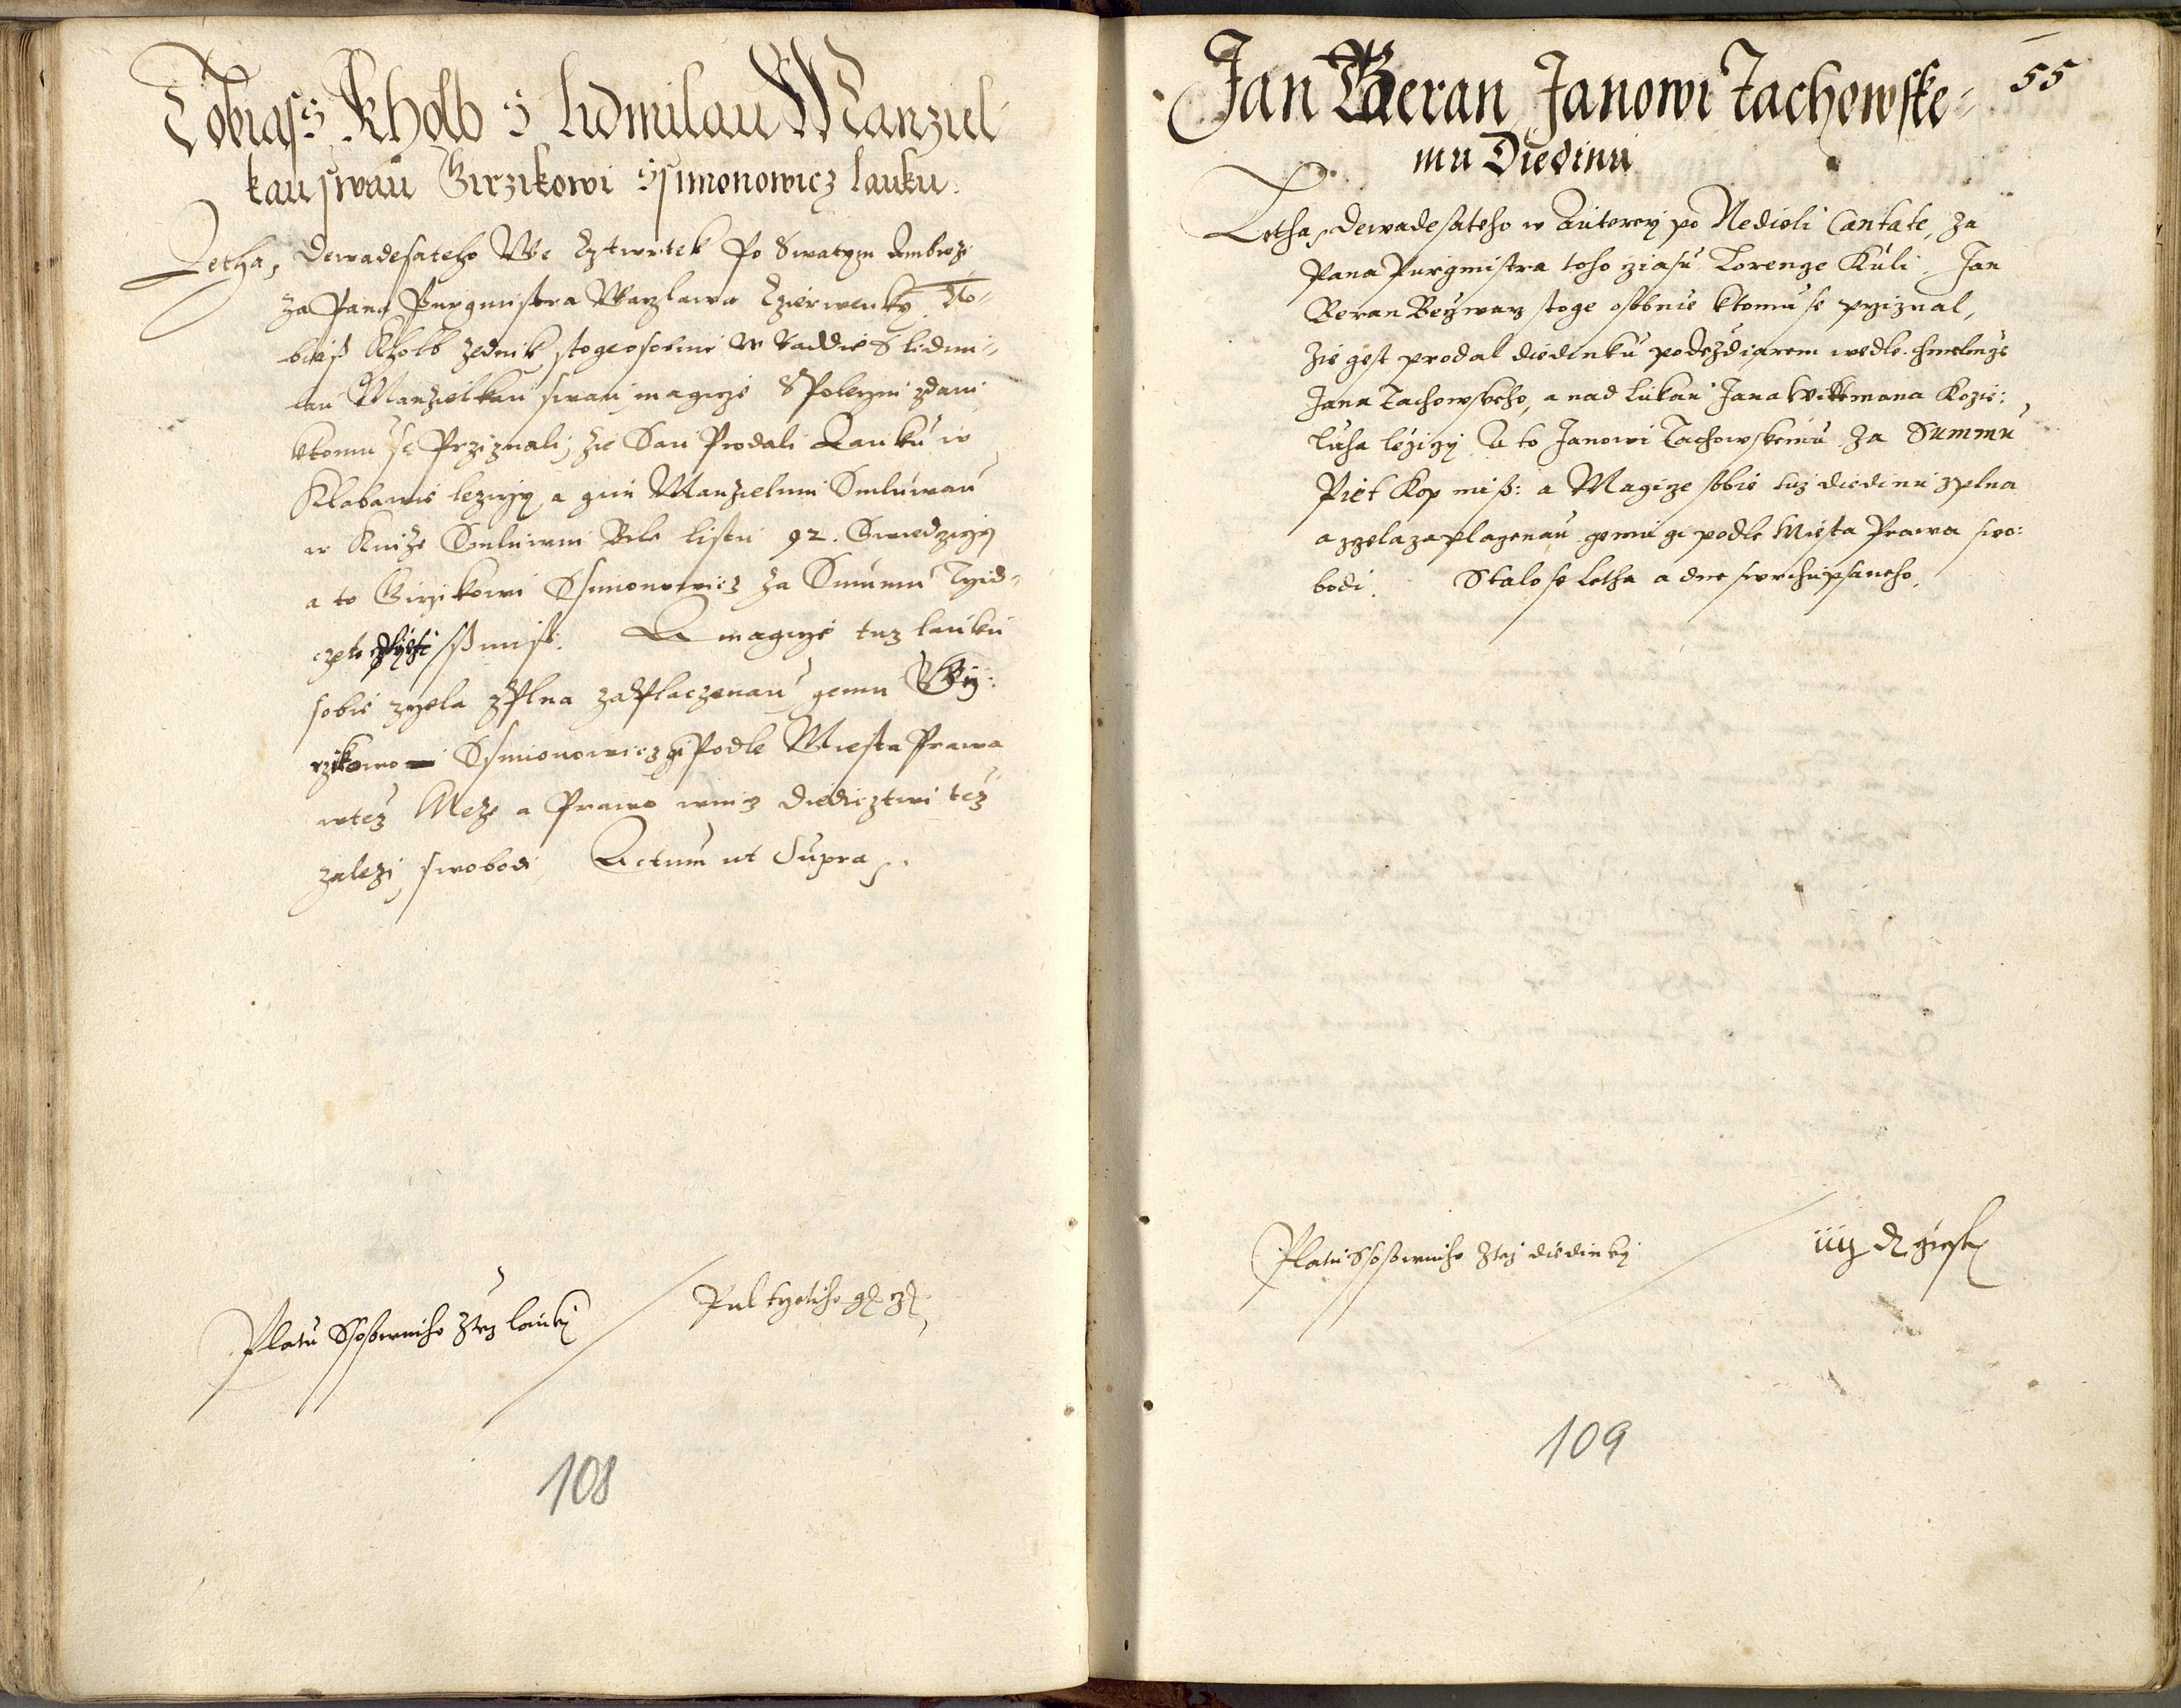 Tobiass Kholb s lidmilau Manziel
kau swau Girzikowi Ssimonowicz lauku.
Letha, Dewadesateho We Cztwrtek Po Swatym Ambroz
za Pana Purgmistra Waczlawa Czierwenky. To-
biass Kholb zednik stoge osobnie w Raddie S lidmi-
lau Manzielkau swau magicze Spolecznie zdani
ktomu se Przyznali, zie Sau Prodali Lauku w
Klabawie lezyczy, a gim Manzielum Smluwau
w Knize Smluwni Bile listu 92. Swiedczyczy
a to Girzikowi Ssimonowicz za Summu Tyid-
ssmiss. A magicze tuz lauku
sobie zczela zPlna zaPlaczenau gemu Gi:
rzikowi Ssimonowicz gi Podle Miesta Prawa
wtez Meze a Prawo wnicz Diedicztwi tez
zalezi, swobodi Actum ut Supra.
Platu Ssossowniho ztez lauky Pul tyetiho
108
55
Jan Beran Janowi Tachowske-
mu Diedinu
Letha, Dewadesateho w Auterey po Nedieli Cantate, za
Pana Purgmistra toho cziasu Lorencze Kuli. Jan
Beran stoge osobnie ktomu se przyznal,
zie gest prodal diedinku podezdiarem wedle chmelnicze
Jana Tachowskeho, a nad lukau Jana Wittmana Kozie:
luha lezyczy. A to Janowi Tachowskemu za Summu
Piet Kop miss: a Magicze sobie tuz diedinu zplna
a zczela zaplaczenau gemu gi podle Miesta Prawa swo:
bodi. Stalo se letha a dne swrchupsaneho.
Platu Ssossowniho ztez diedinky
109